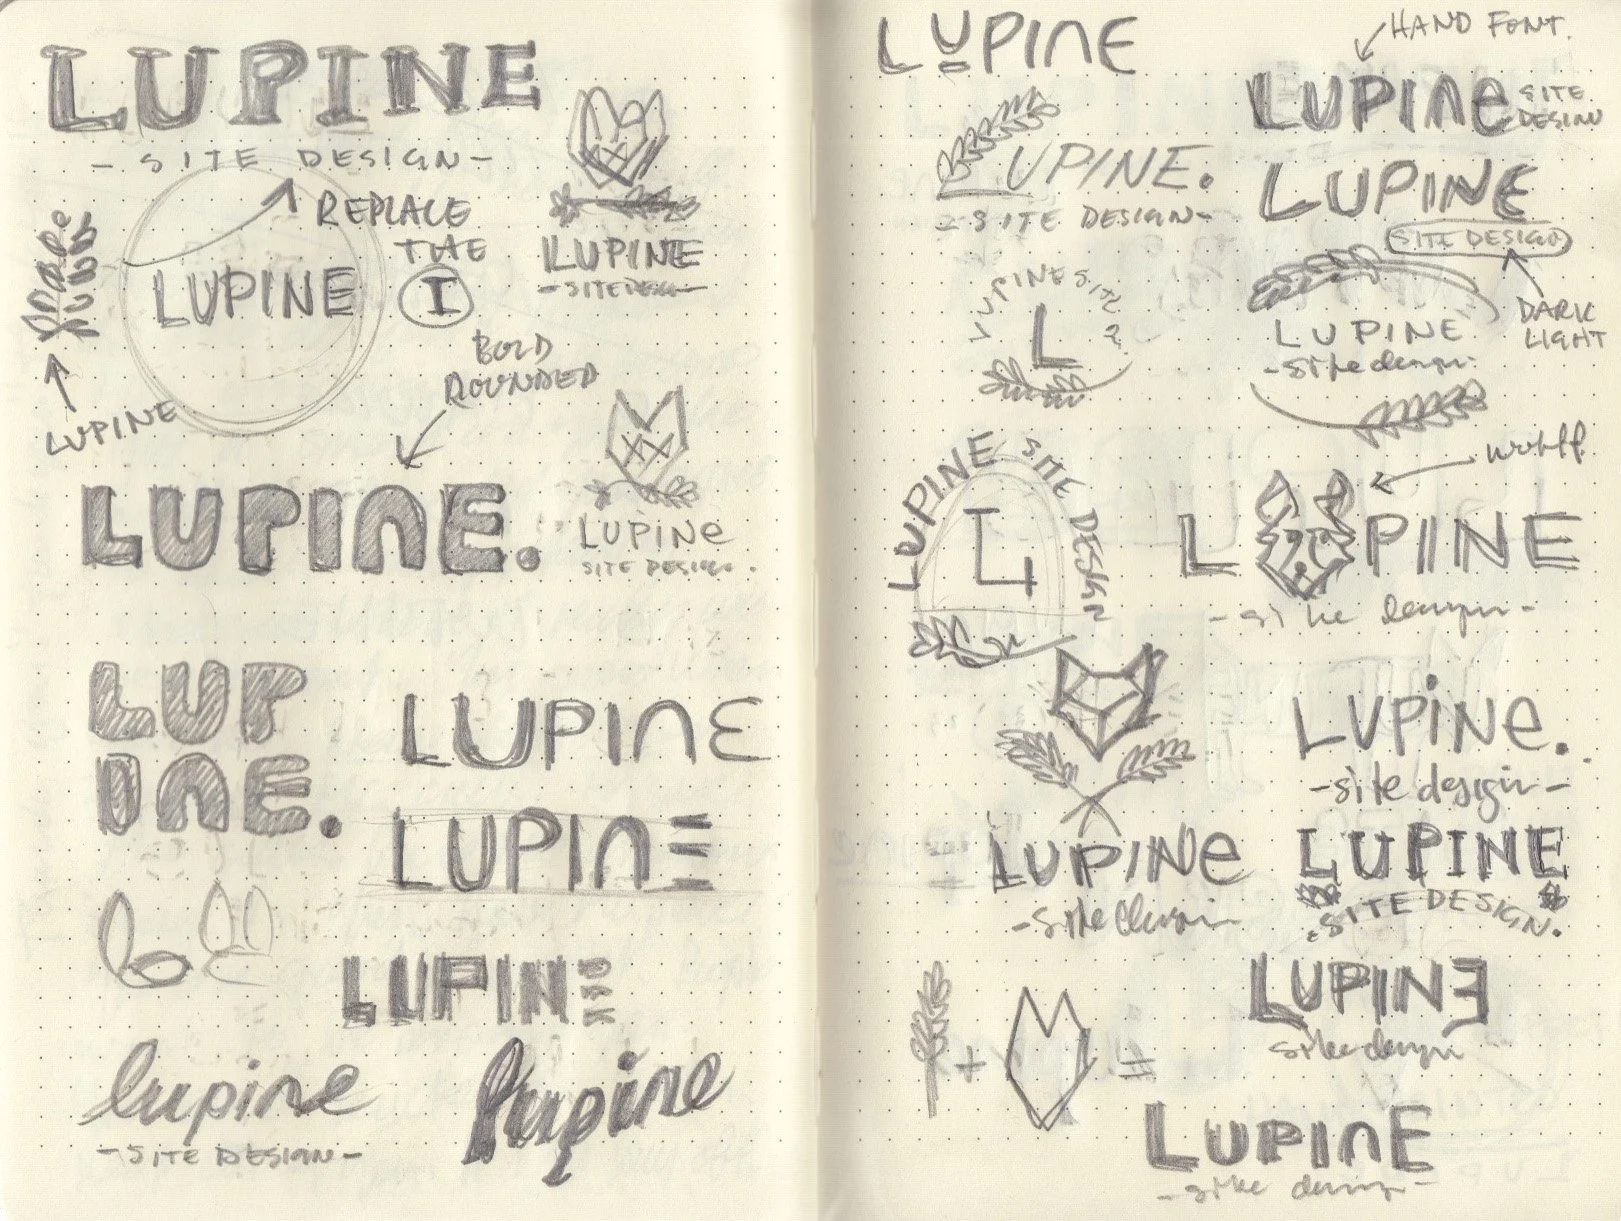 LUPINE
- SITE DESIGN -
REPLACE
THE
I
LUPINE
LUPINE
LUPINE
- SITE DESIGN -
BOLD
ROUNDED
LUPINE.
LUPINE
SITE DESIGN.
LUP
INE.
LUPINE
LUPINE
LUPINE
lupine
- SITE DESIGN -
lupine
LUPINE
HAND FONT.
LUPINE
SITE
DESIGN
LUPINE.
- SITE DESIGN -
LUPINE
SITE DESIGN
DARK
LIGHT
LUPINE SITE
L
LUPINE
- site design -
LUPINE SITE DESIGN
L
LUPINE
- site design -
LUPINE
- site design -
LUPINE.
- site design -
LUPINE
SITE DESIGN.
+ =
LUPINE
site design
LUPINE
- site design -